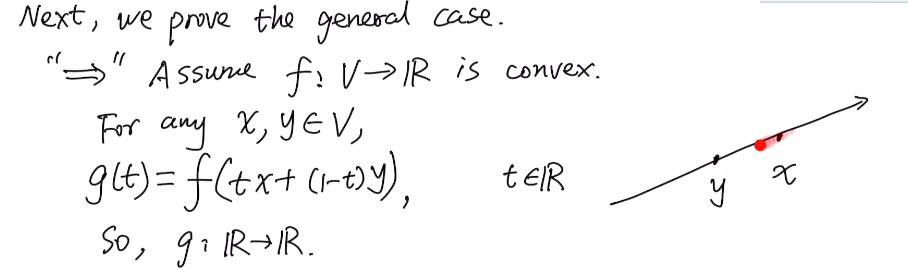 Next, we prove the general case.
"⇒" Assume f: V→ℝ is convex.
For any x, y ∈ V,
g(t) = f(tx + (1-t)y), t ∈ ℝ
y x
So, g: ℝ→ℝ.